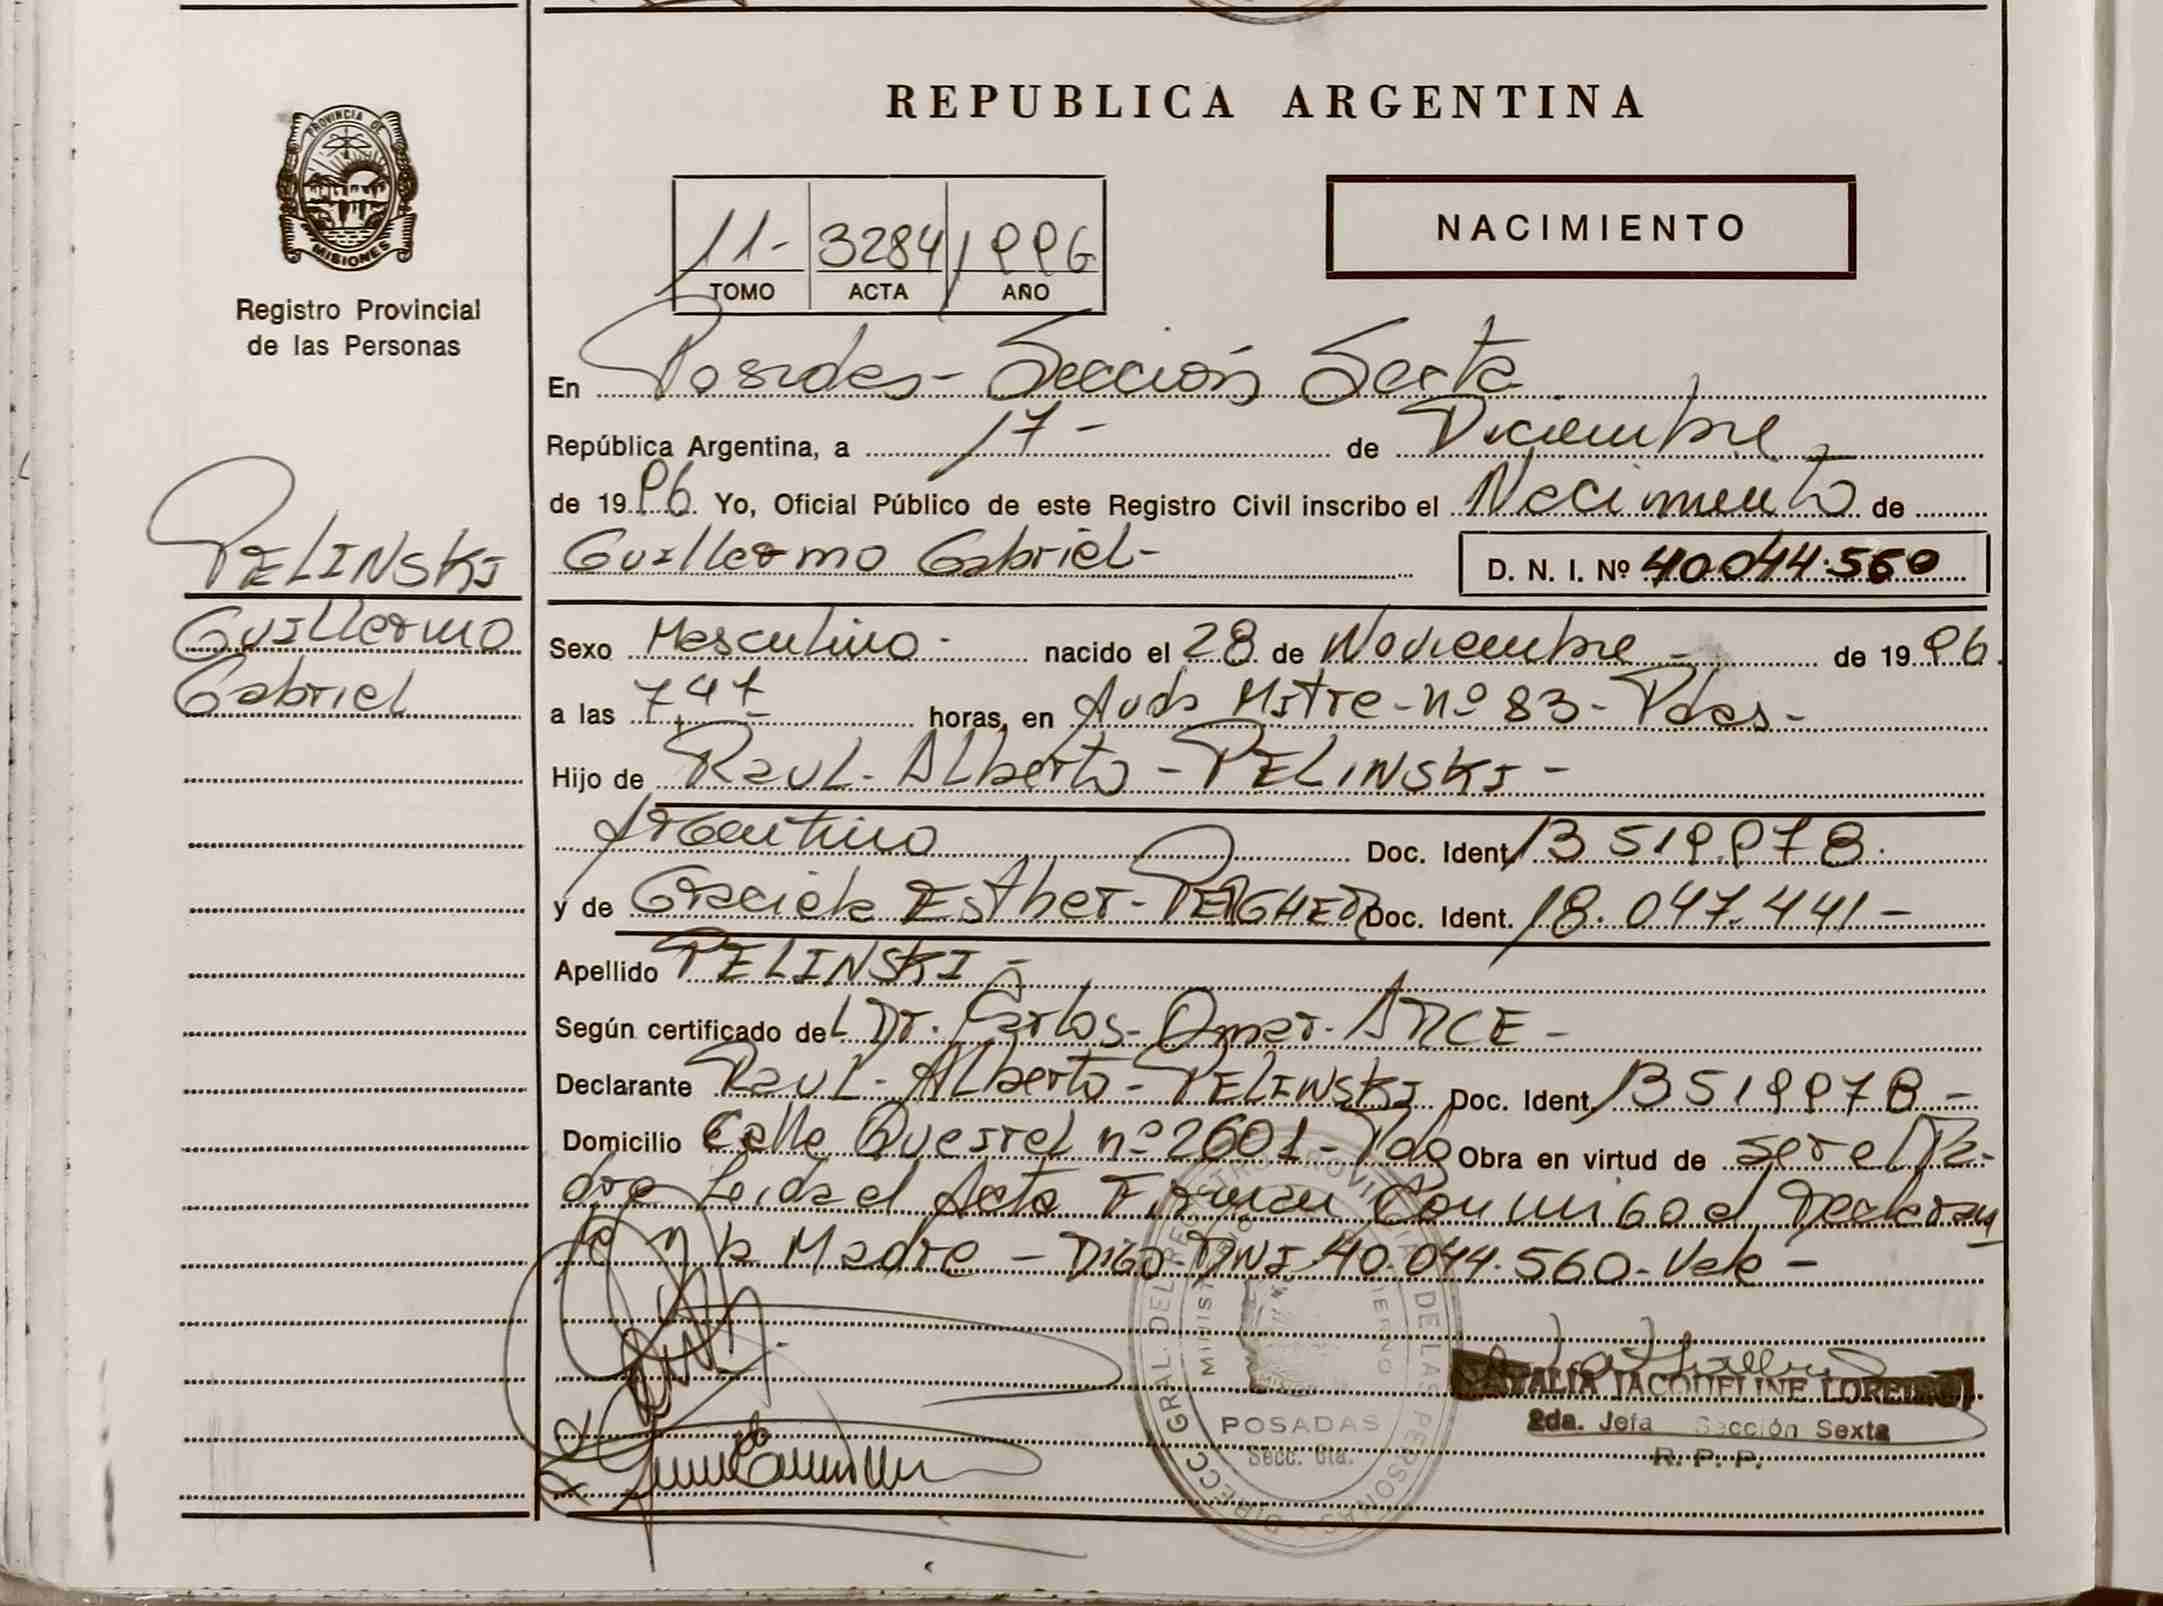 REPUBLICA ARGENTINA
PROVINCIA DE
MISIONES
Registro Provincial
de las Personas
11- 3284 1996
TOMO ACTA AÑO
NACIMIENTO
En Posadas - Sección Sexta
República Argentina, a 17- de Diciembre
de 1996 Yo, Oficial Público de este Registro Civil inscribo el Nacimiento de
PELINSKI
Guillermo
Gabriel
Guillermo Gabriel- D. N. I. Nº 40044.560
Sexo Masculino- nacido el 28 de Noviembre - de 1996.
a las 7,47 horas, en Avda Mitre-nº 83- Pdas-
Hijo de Raul- Alberto - PELINSKI -
Argentino Doc. Ident. 13519.978.
y de Graciela Esther- Doc. Ident. 18.047.441-
Apellido PELINSKI -
Según certificado del Dr. Carlos- Omar- ARCE -
Declarante Raul- Alberto- PELINSKI Doc. Ident. 13519978-
Domicilio Calle nº 2601- Pdas Obra en virtud de ser el Pa-
dre Leida el Acta Firman Conmigo el Declaran
te y la Madre - Digo DNI 40.044.560- Vale -
DIRECC. GRAL. DEL REGISTRO PROVINCIAL DE LAS PERSONAS
POSADAS
Secc. 6ta.
NATALIA JACQUELINE
2da. Jefa Sección Sexta
R. P. P.